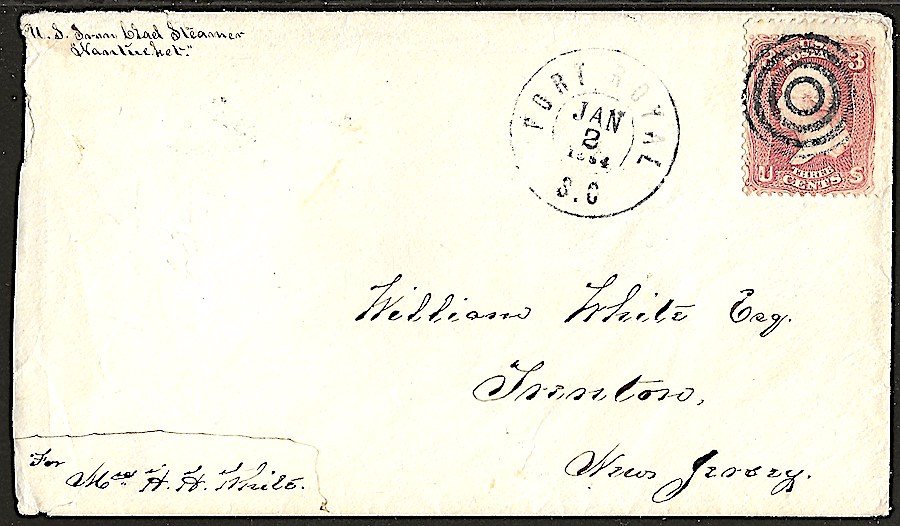 U. S. Iron Clad Steamer
"Nantucket."
PORT ROYAL
JAN
2
1864
S.C
3
U THREE S
CENTS
William White Esq.
Trenton,
New Jersey.
For
Mrs H. H. White.